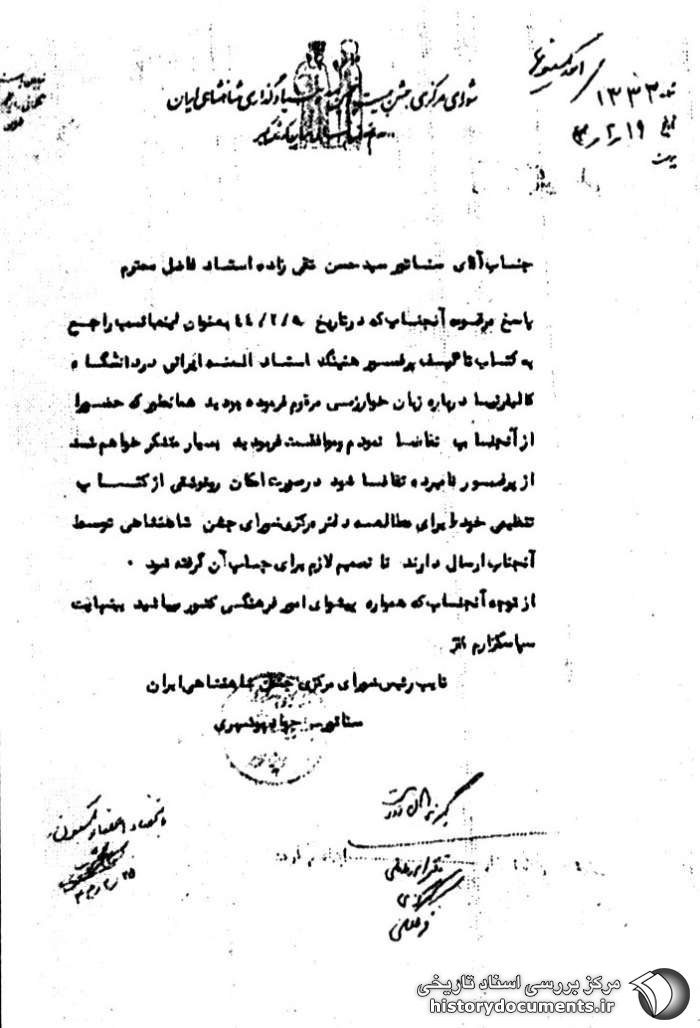 شورای مرکزی جشن بنیادگذاری شاهنشاهی ایران
امور کمیسیونها
۱۳۳۲
۱۹ر۲ر
جناب آقای سناتور سید حسن تقی زاده استاد فاضل محترم
پاسخ مرقومه آنجناب که در تاریخ ۴۴/۲/۹ بعنوان اینجانب راجع
به کتاب تالیف پرفسور هنینگ استاد السنه ایرانی در دانشگاه
کالیفرنیا درباره زبان خوارزمی مرقوم فرموده بودید همانطور که حضورا
از آنجناب تقاضا نمودم و موافقت فرمودید بسیار متشکر خواهم شد
از پرفسور نامبرده تقاضا شود در صورت امکان رونوشتی از کتاب
تنظیمی خود را برای مطالعه دفتر مرکزی شورای جشن شاهنشاهی توسط
آنجناب ارسال دارند تا تصمیم لازم برای چاپ آن گرفته شود ۰
از توجه آنجناب که همواره پیشوای امور فرهنگی کشور میباشید بینهایت
سپاسگزارم
نایب رئیس شورای مرکزی جشن شاهنشاهی ایران
سناتور جواد بوشهری
مرکز بررسی اسناد تاریخی
historydocuments.ir